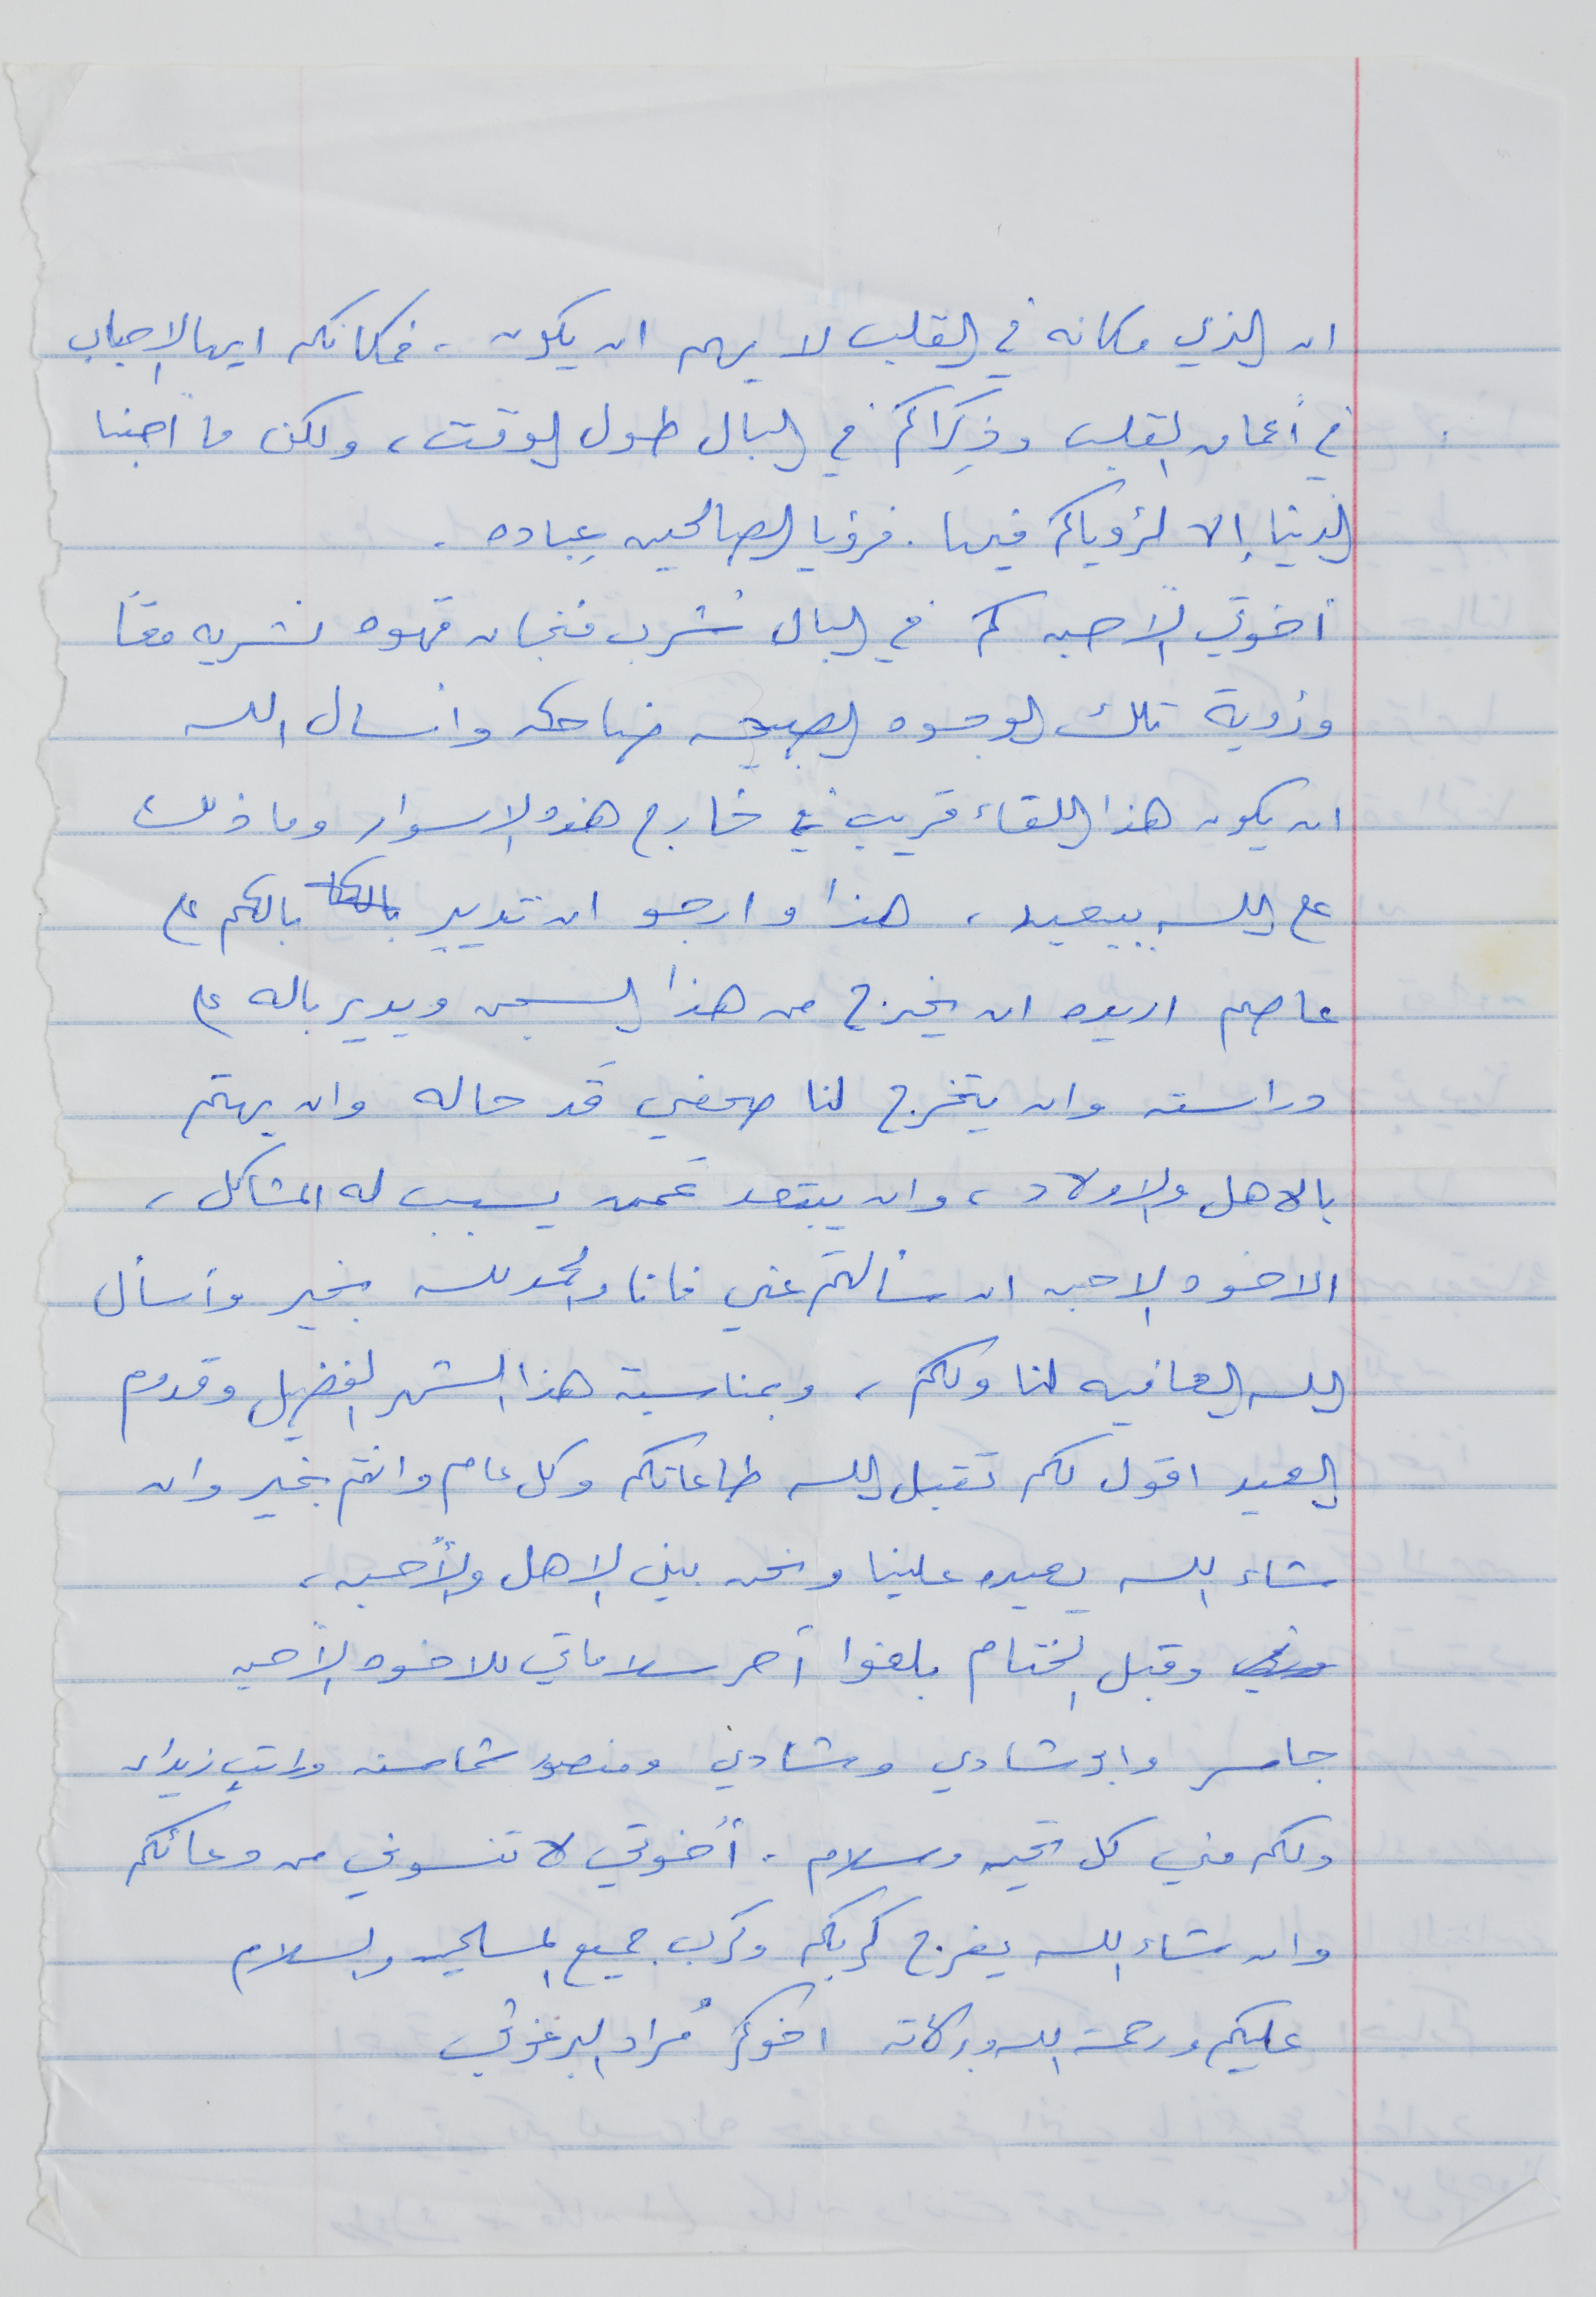 ان الذي مكانه في القلب لا يهم اين يكون ، فمكانكم ايها الاحباب
في أعماق القلب وذِكراكم في البال طول الوقت ، ولكن ما أحببنا
الدنيا إلا لرؤياكم فيها . فرؤيا الصالحين عِباده .
أخوتي الأحبه كم في البال نُشرب فنجان قهوه نشربه معًا
ورؤية تلك الوجوه الصبحه ضاحكه وانسال الله
ان يكون هذا اللقاء قريب في خارج هذه الاسوار وما ذلك
ع الله ببعيد ، هذا وارجو ان تدير بالكم ع
عاصم اريده ان يخرج من هذا السجن ويدير باله ع
دراسته وان يتخرج لنا صحفي قَد حاله وان يهتم
بالاهل والاولاد ، وان يبتعد عَمن يسبب له المشاكل ،
الاخوه الاحبه ان سألتم عني فانا والحمد لله بخير وأسأل
الله العافيه لنا ولكم ، وبمناسبة هذا الشهر الفضيل وقدوم
العيد اقول لكم تقبل الله طاعاتكم وكل عام وانتم بخير وان
شاء الله يعيده علينا ونحن بين الاهل والأحبه ،
وقبل الختام بلغوا أحر سلاماتي للاخوه الأحبه
جاسر وابو شادي وشادي ومنصور شماسنه وراتب زيدان
ولكم مني كل تحيه وسلام . أخوتي لا تنسوني من دعائكم
وان شاء الله يفرج كربكم وكرب جميع المسلمين والسلام
عليكم ورحمة الله وبركاته اخوكم مُراد البرغوثي